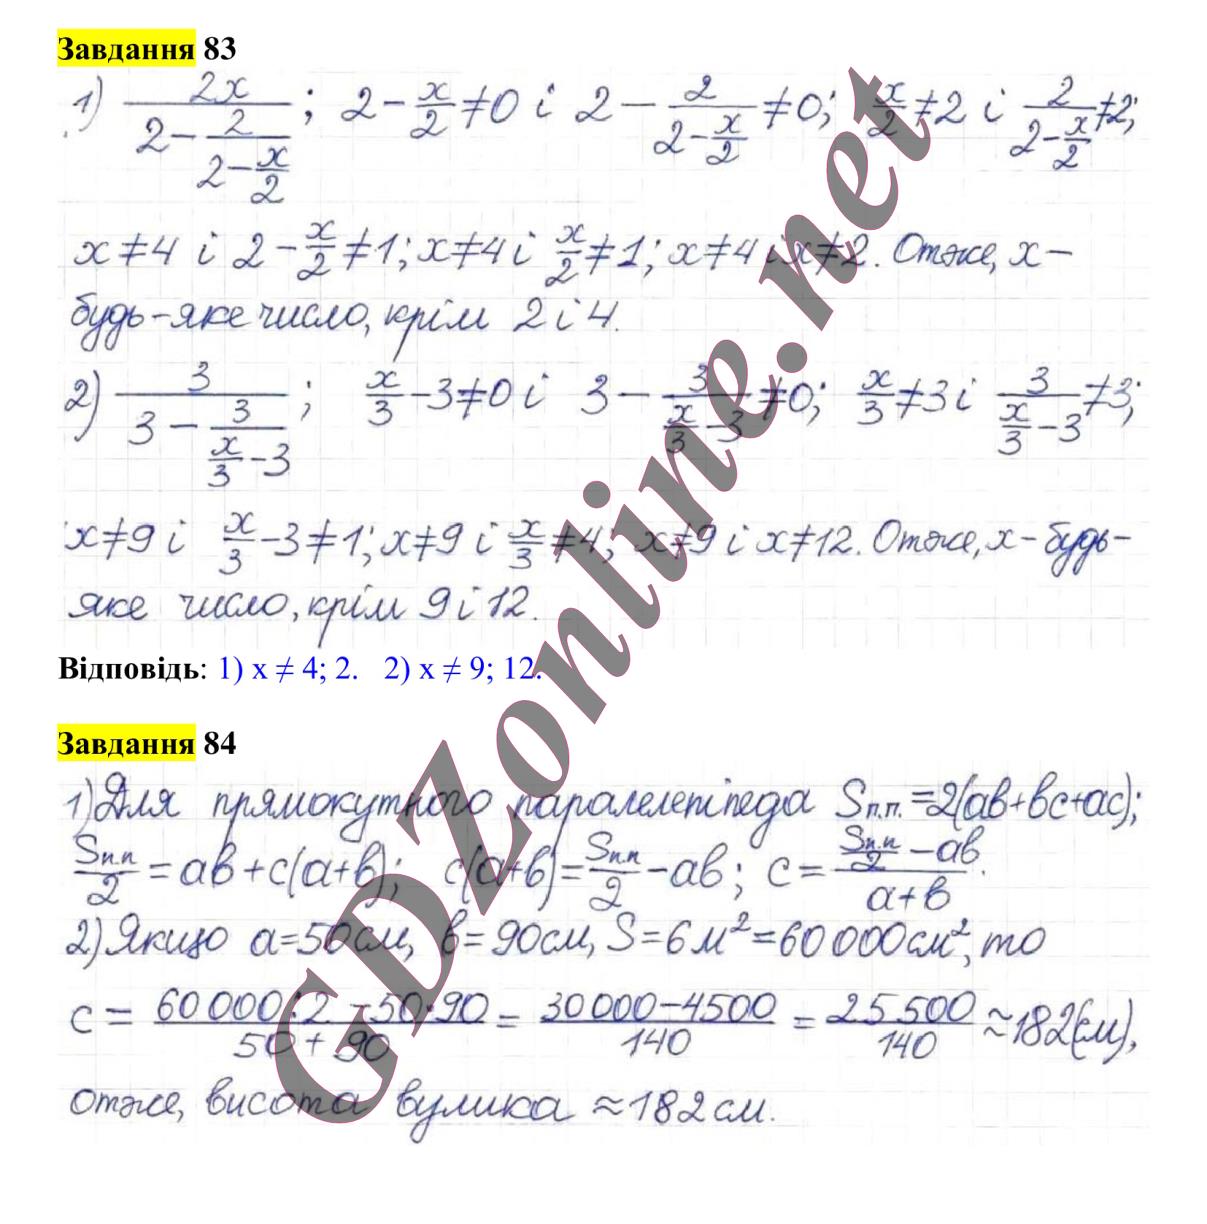 Завдання 83
1) 2x/(2 − 2/(2 − x/2)); 2 − x/2 ≠ 0 і 2 − 2/(2 − x/2) ≠ 0; x/2 ≠ 2 і 2/(2 − x/2) ≠ 2;
x ≠ 4 і 2 − x/2 ≠ 1; x ≠ 4 і x/2 ≠ 1; x ≠ 4 і x ≠ 2. Отже, x –
будь-яке число, крім 2 і 4.
2) 3/(3 − 3/(x/3 − 3)); x/3 − 3 ≠ 0 і 3 − 3/(x/3 − 3) ≠ 0; x/3 ≠ 3 і 3/(x/3 − 3) ≠ 3;
x ≠ 9 і x/3 − 3 ≠ 1; x ≠ 9 і x/3 ≠ 4; x ≠ 9 і x ≠ 12. Отже, x – будь-
яке число, крім 9 і 12.
Відповідь: 1) x ≠ 4; 2. 2) x ≠ 9; 12.
Завдання 84
1) Для прямокутного паралелепіпеда Sп.п. = 2(ab + bc + ac);
Sп.п/2 = ab + c(a+b); c(a+b) = Sп.п/2 − ab; c = (Sп.п/2 − ab)/(a + b).
2) Якщо a = 50 см, b = 90 см, S = 6 м² = 60 000 см², то
c = (60 000 : 2 − 50·90)/(50 + 90) = (30 000 − 4500)/140 = 25 500/140 ≈ 182 (см),
отже, висота вулика ≈ 182 см.
GDZonline.net